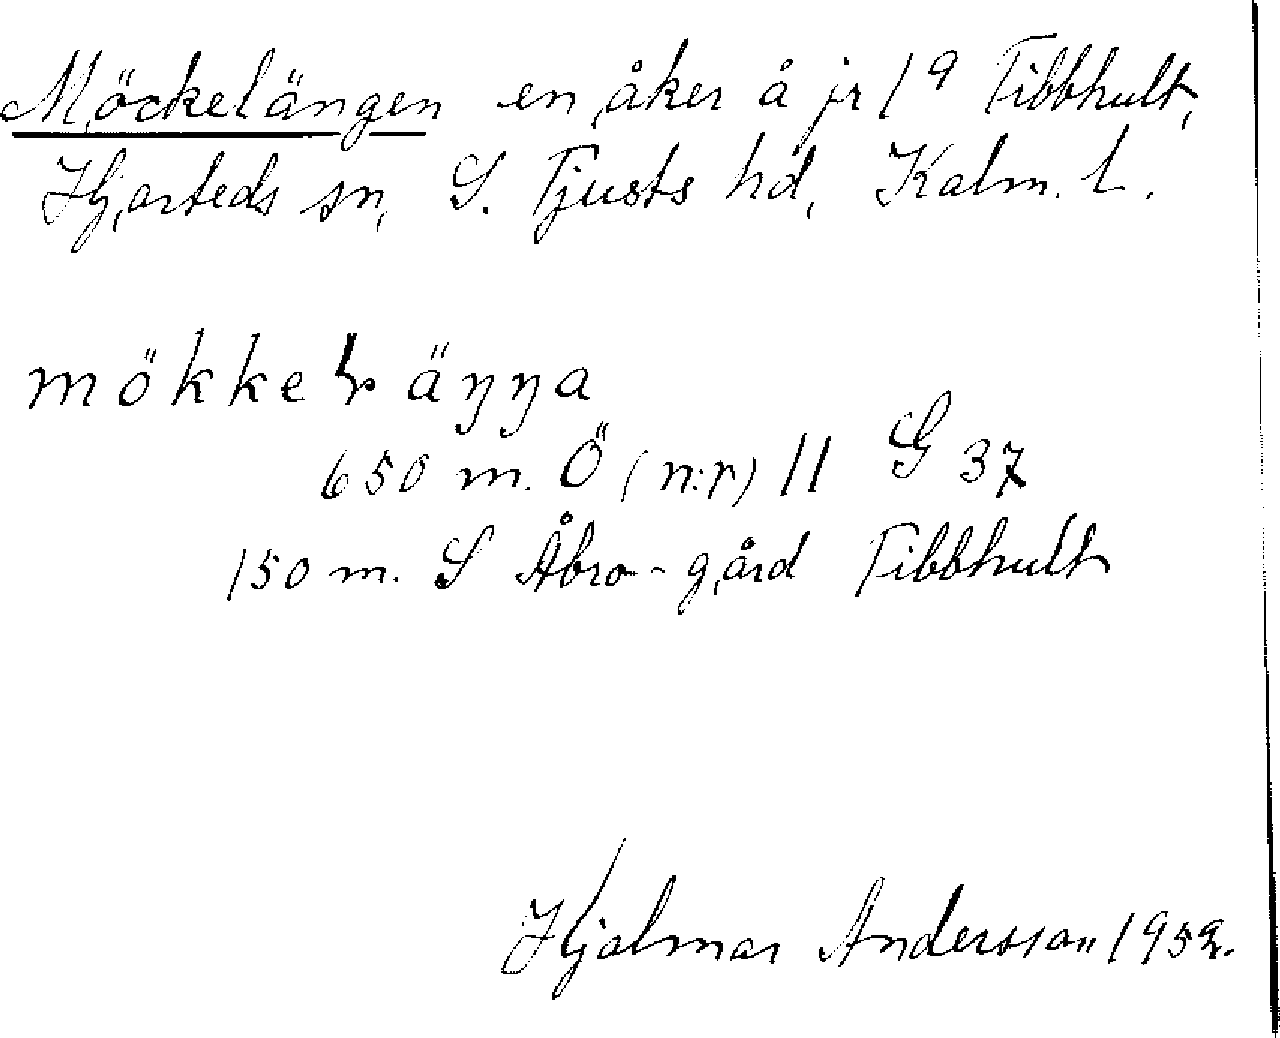 Möckelängen en åker å jr 1ª Tibbhult,
Hjorteds sn, S. Tjusts hd, Kalm. l.
mökkelräŋŋa
650 m. Ö (n:r) 11 G 37
150 m. S Åbro-gård Tibbhult
Hjalmar Andersson 1952.